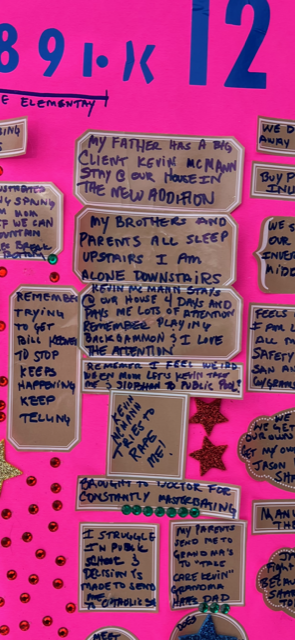 8 9 1
12
E ELEMENTAY
MY FATHER HAS A BIG
CLIENT KEVIN MCMANN
STAY @ OUR HOUSE IN
THE NEW ADDITION
MY BROTHERS AND
PARENTS ALL SLEEP
UPSTAIRS I AM
ALONE DOWNSTAIRS
KEVIN MCMANN STAYS
@ OUR HOUSE 4 DAYS AND
PAYS ME LOTS OF ATTENTION
REMEMBER PLAYING
BACKGAMMON & I LOVE
THE ATTENTION
REMEMBER I FEEL WEIRD
WHEN MOM LET KEVIN TAKE
ME & TO PUBLIC POOL?
REMEMBER
TRYING
TO GET
BILL
TO STOP
KEEPS
HAPPENING
KEEP
TELLING
KEVIN
MCMANN
TRIES TO
RAPE
ME!
BROUGHT TO DOCTOR FOR
CONSTANTLY MASTERBATING
I STRUGGLE
IN PUBLIC
SCHOOL &
DECISION IS
MADE TO SEND
ME
MY PARENTS
SEND ME TO
GRANDMA'S
TO "TAKE
CARE KEVIN"
GRANDMA
HAS DAD
MEET
WE D
AWAY
BUY P
WE S
OUR
INVER
MIDD
FEELS
I AM L
ALL
SAFETY
SAN AN
WE GET
OUR OWN
GET MY OW
JASON
MANU
THE
FIGHT
BECAU